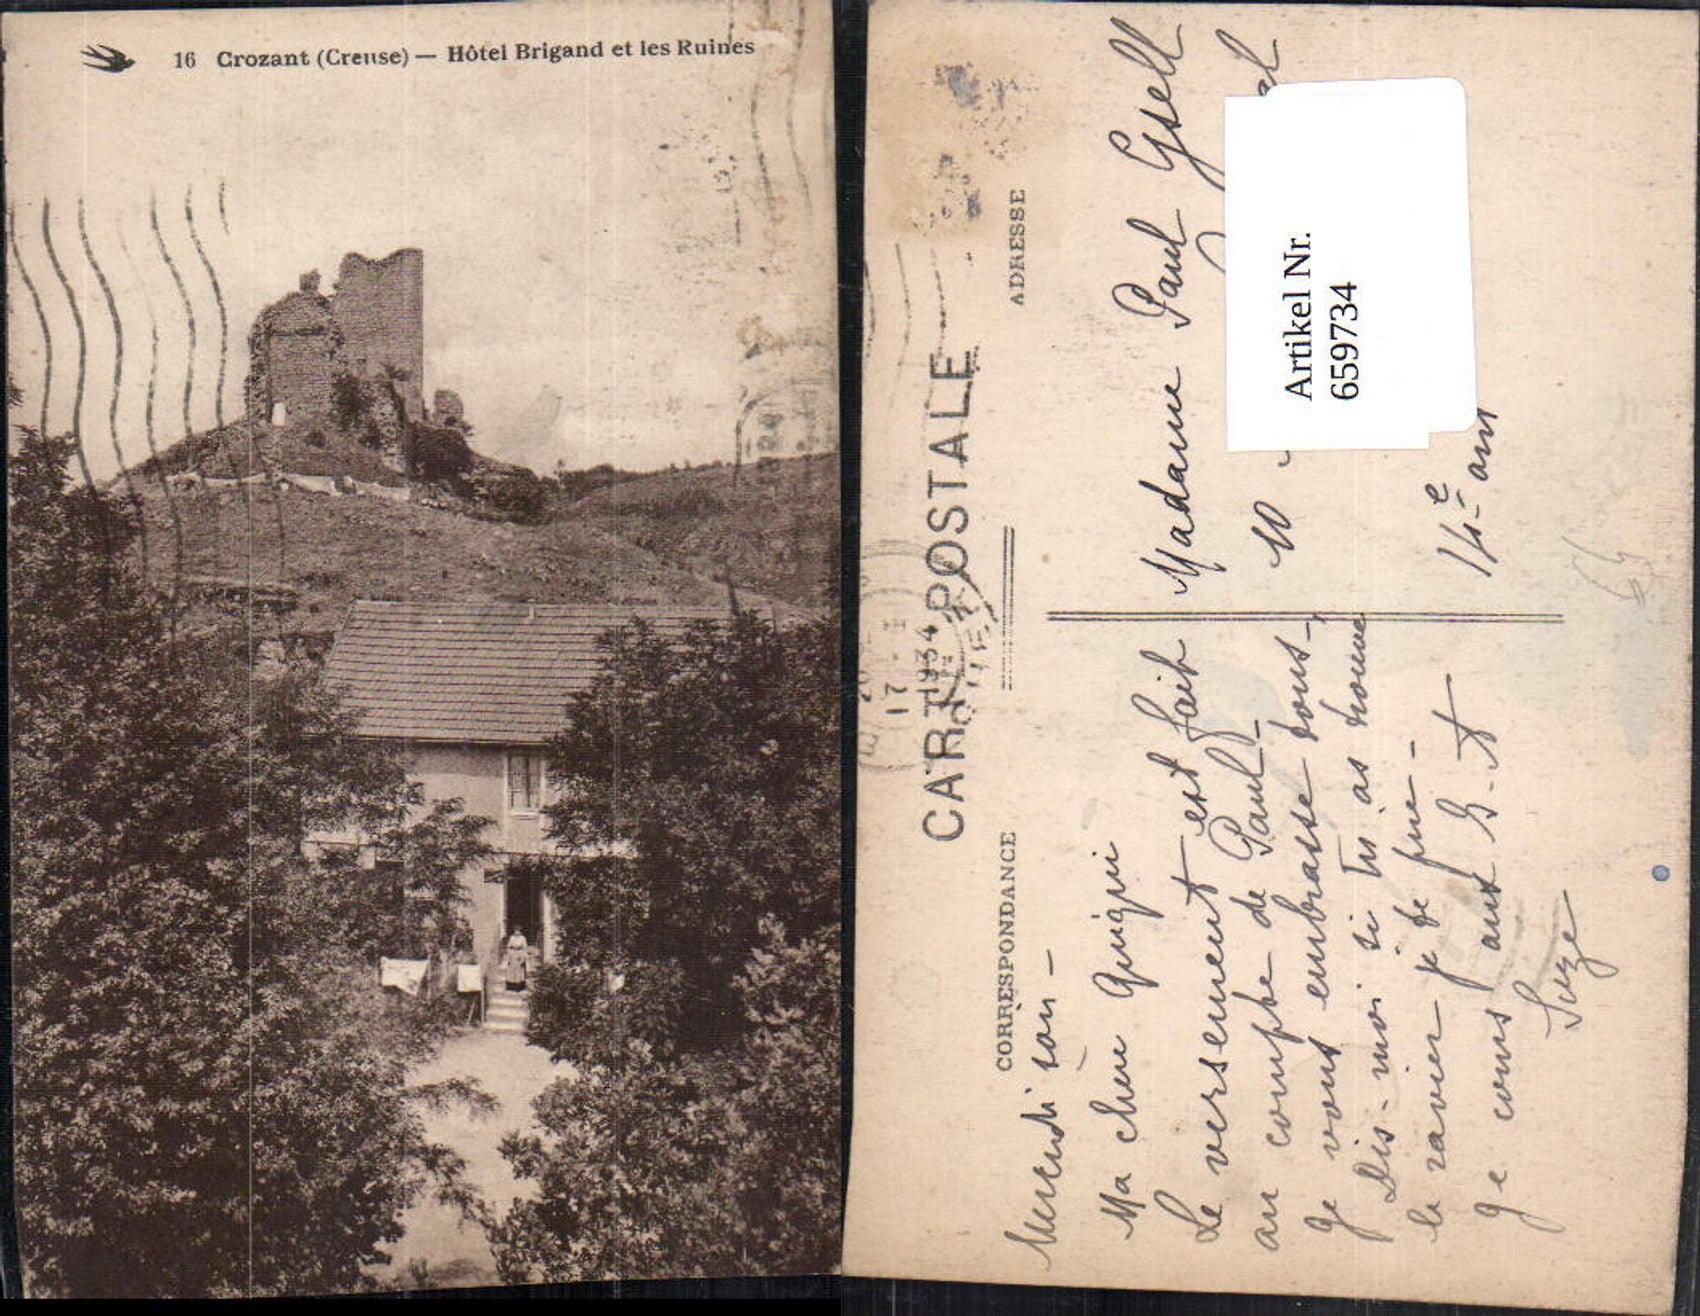 16 Crozant (Creuse) — Hôtel Brigand et les Ruines
CARTE POSTALE
CORRESPONDANCE
ADRESSE
17 - 1
1934
Mercredi soir -
Ma chère Guigui
Le versement est fait
au compte de Paul -
Je vous embrasse tous -,
Dis-moi si tu as trouvé
le ravier je te prie -
Je cours aux G. A
Suze
Madame Paul Gsell
10
14e arrt
Artikel Nr.
659734